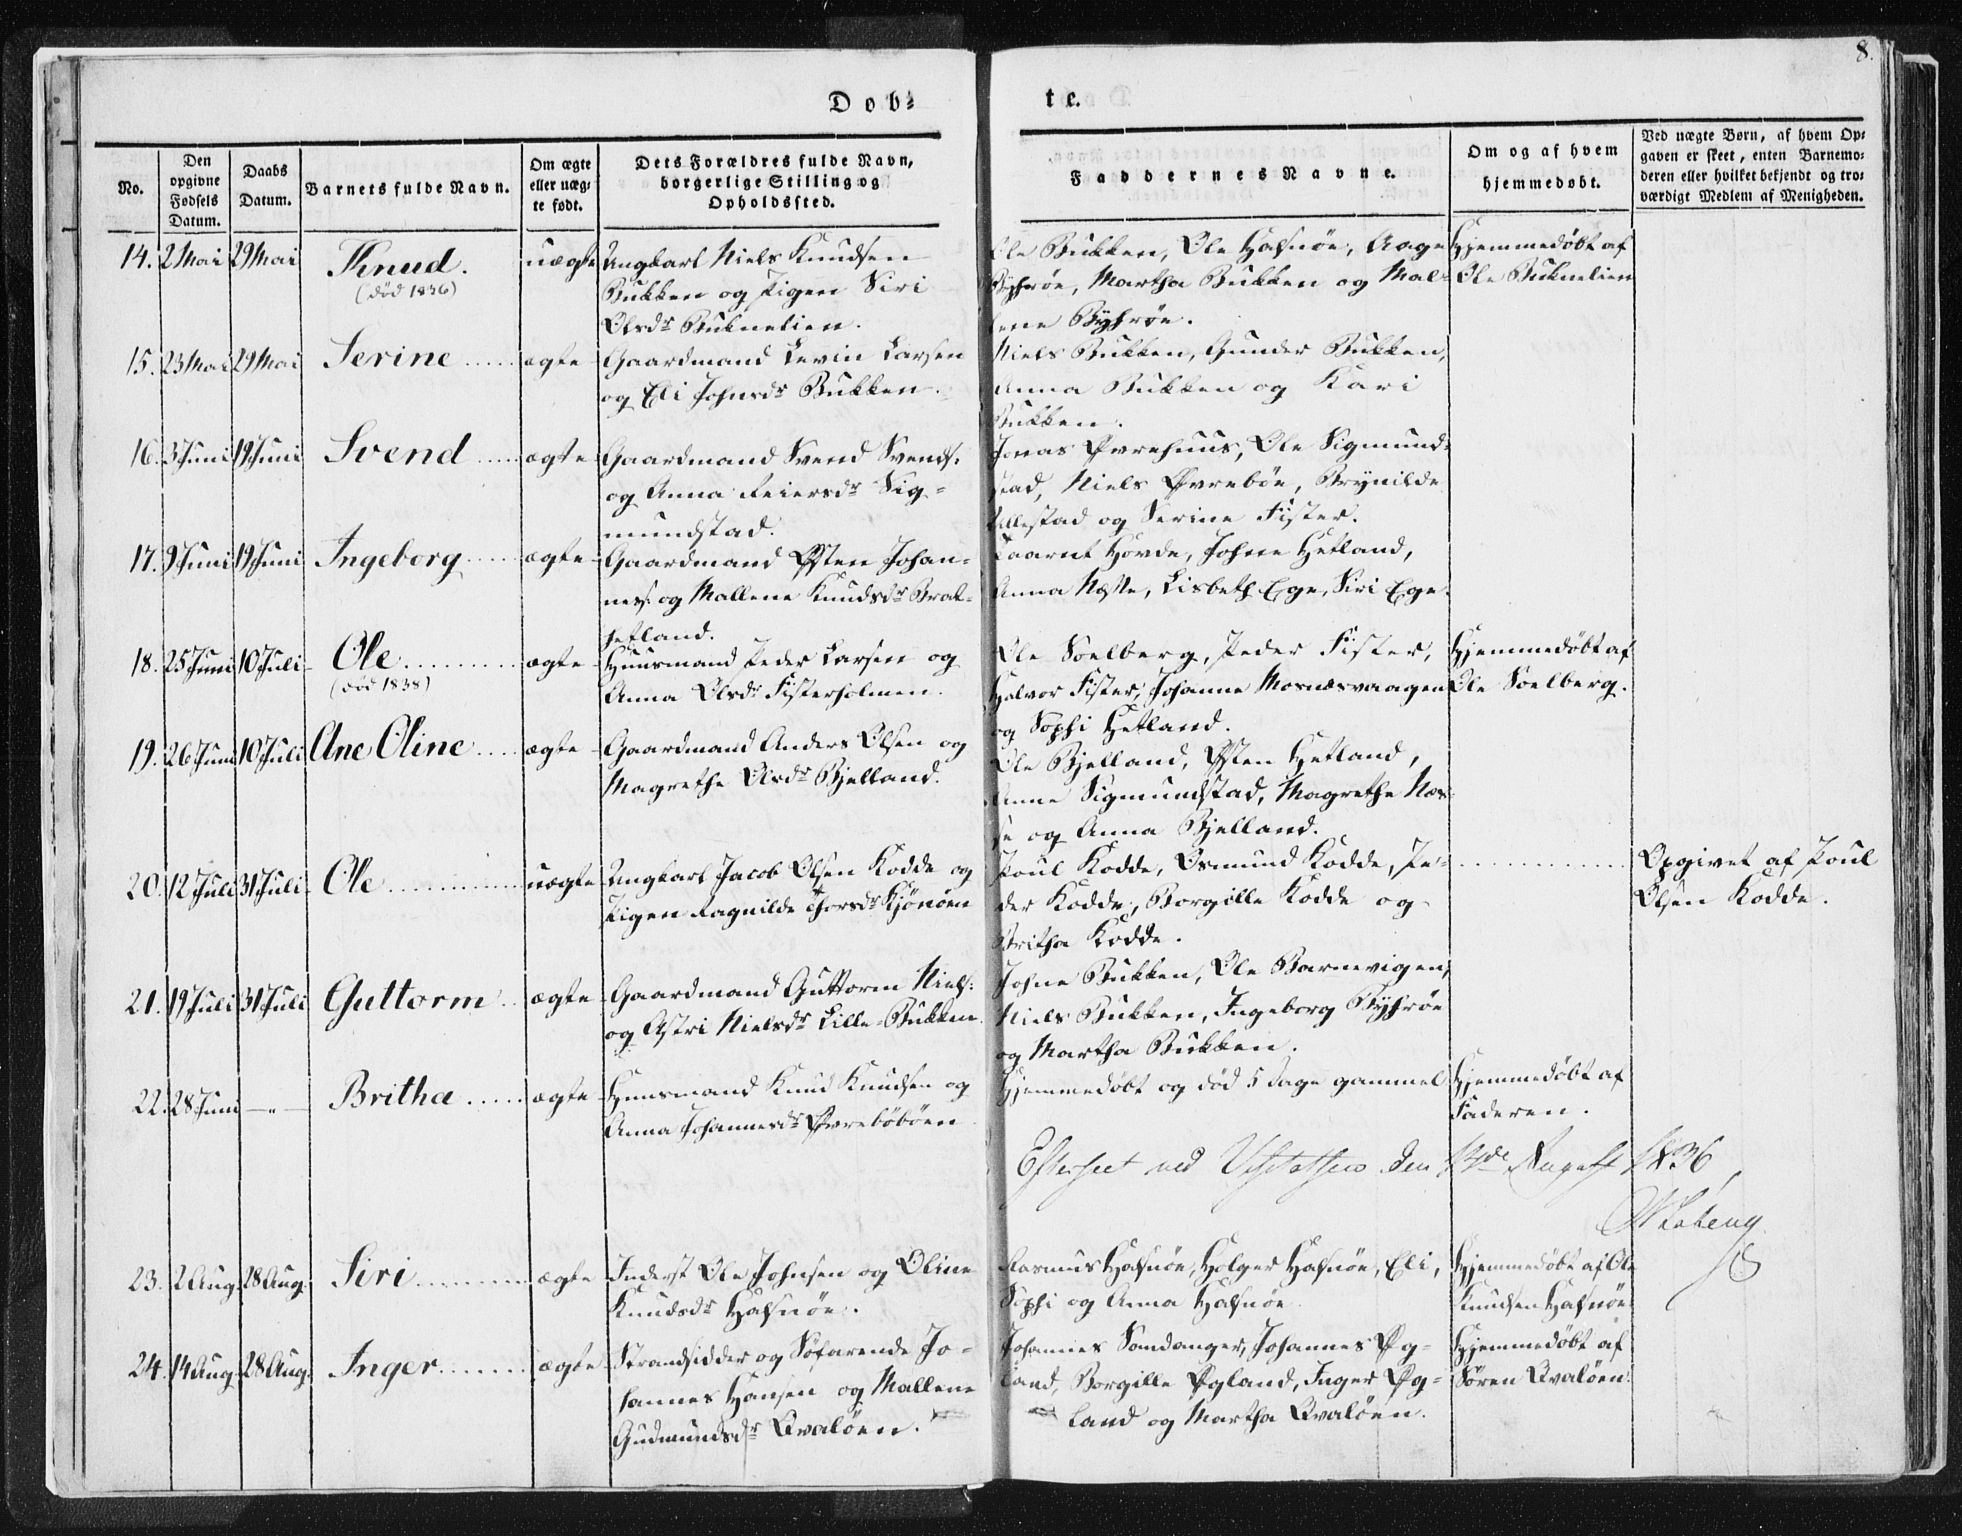 8.
Döb-
te.
No.
Den opgivne Fødsels Datum.
Daabs Datum.
Barnets fulde Navn.
Om ægte eller uæg- te født.
Dets Forældres fulde Navn, borgerlige Stilling og Opholdssted.
Faddernes Navne.
Om og af hvem hjemmedøbt.
Ved uægte Børn, af hvem Op- gaven er skeet, enten Barnemo- deren eller hvilket bekjendt og tro- værdigt Medlem af Menigheden.
14. 2 Mai 29 Mai Knud. uægte Ungkarl Niels Knudsen
(død 1836) Bukken og Pigen Siri
Olsdr Buknelien.
Ole Bukken, Ole Hafnöe, Aage
Byhröe, Martha Bukken og Mal-
lene Byhröe.
Hjemmedöbt af
Ole Buknelien
15. 23 Mai 29 Mai Serine ægte Gaardmand Levin Larsen
og Eli Johnsdr Bukken.
Niels Bukken, Gunder Bukken,
Anna Bukken og Kari
Bukken.
16. 3 Juni 19 Juni Svend ægte Gaardmand Svend Svends.
og Anna Reiersdr Sig-
mundstad.
Jonas Øvrehuus, Ole Sigmund-
stad, Niels Øvreböe, Brynilde
Tillestad og Serine Fister.
17. 9 Juni 19 Juni Ingeborg ægte Gaardmand Østen Johan-
ness. og Mallene Knudsdr Brat-
hetland.
Gaarnt Hovda, Johne Hetland,
Anna Næsse, Lisbeth Ege, Siri Ege.
18. 25 Juni 10 Juli Ole ægte Huusmand Peder Larsen og
(død 1838) Anna Olsdr Fisterholmen.
Ole Soelberg, Peder Fister,
Halvor Fister, Johanne Mosnæsvaagen
og Sophi Hetland.
Hjemmedöbt af
Ole Soelberg.
19. 26 Juni 10 Juli Ane Oline ægte Gaardmand Anders Olsen og
Magrethe Olsdr Bjelland.
Ole Bjelland, Østen Hetland,
Anne Sigmundstad, Magrethe Næs-
se og Anna Bjelland.
20. 12 Juli 31 Juli Ole uægte Ungkarl Jacob Olsen Kodde og
Pigen Ragnilde Thorsdr Kjönöen
Poul Kodde, Osmund Kodde, Pe-
der Kodde, Borgille Kodde og
Britha Kodde.
Opgivet af Poul
Olsen Kodde.
21. 19 Juli 31 Juli Guttorm ægte Gaardmand Guttorm Niels.
og Astri Nielsdr Lille-Bukken
Johne Bukken, Ole Barnevigen,
Niels Bukken, Ingeborg Byhröe
og Martha Bukken.
22. 28 Juni —"— Britha ægte Huusmand Knud Knudsen og
Anna Johannesdr Øvreböböen
Hjemmedöbt og död 5 dage gammel
Hjemmedöbt af
Faderen.
Efterseet ved Visitatsen den 14de August 1836
23. 2 Aug. 28 Aug. Siri ægte Inderst Ole Johnsen og Oline
Knudsdr Hafnöe.
Rasmus Hafnöe, Holger Hafnöe, Eli,
Sophi og Anna Hafnöe
Hjemmedöbt af Ole
Knudsen Hafnöe
24. 14 Aug. 28 Aug. Inger ægte Strandsidder og Söfarende Jo-
hannes Hansen og Mallene
Gudmundsdr Qvalöen.
Johannes Sandanger, Johannes Øg-
land, Borgille Øgland, Inger Øg-
land og Martha Qvalöen.
Hjemmedöbt af
Sören Qvalöen.